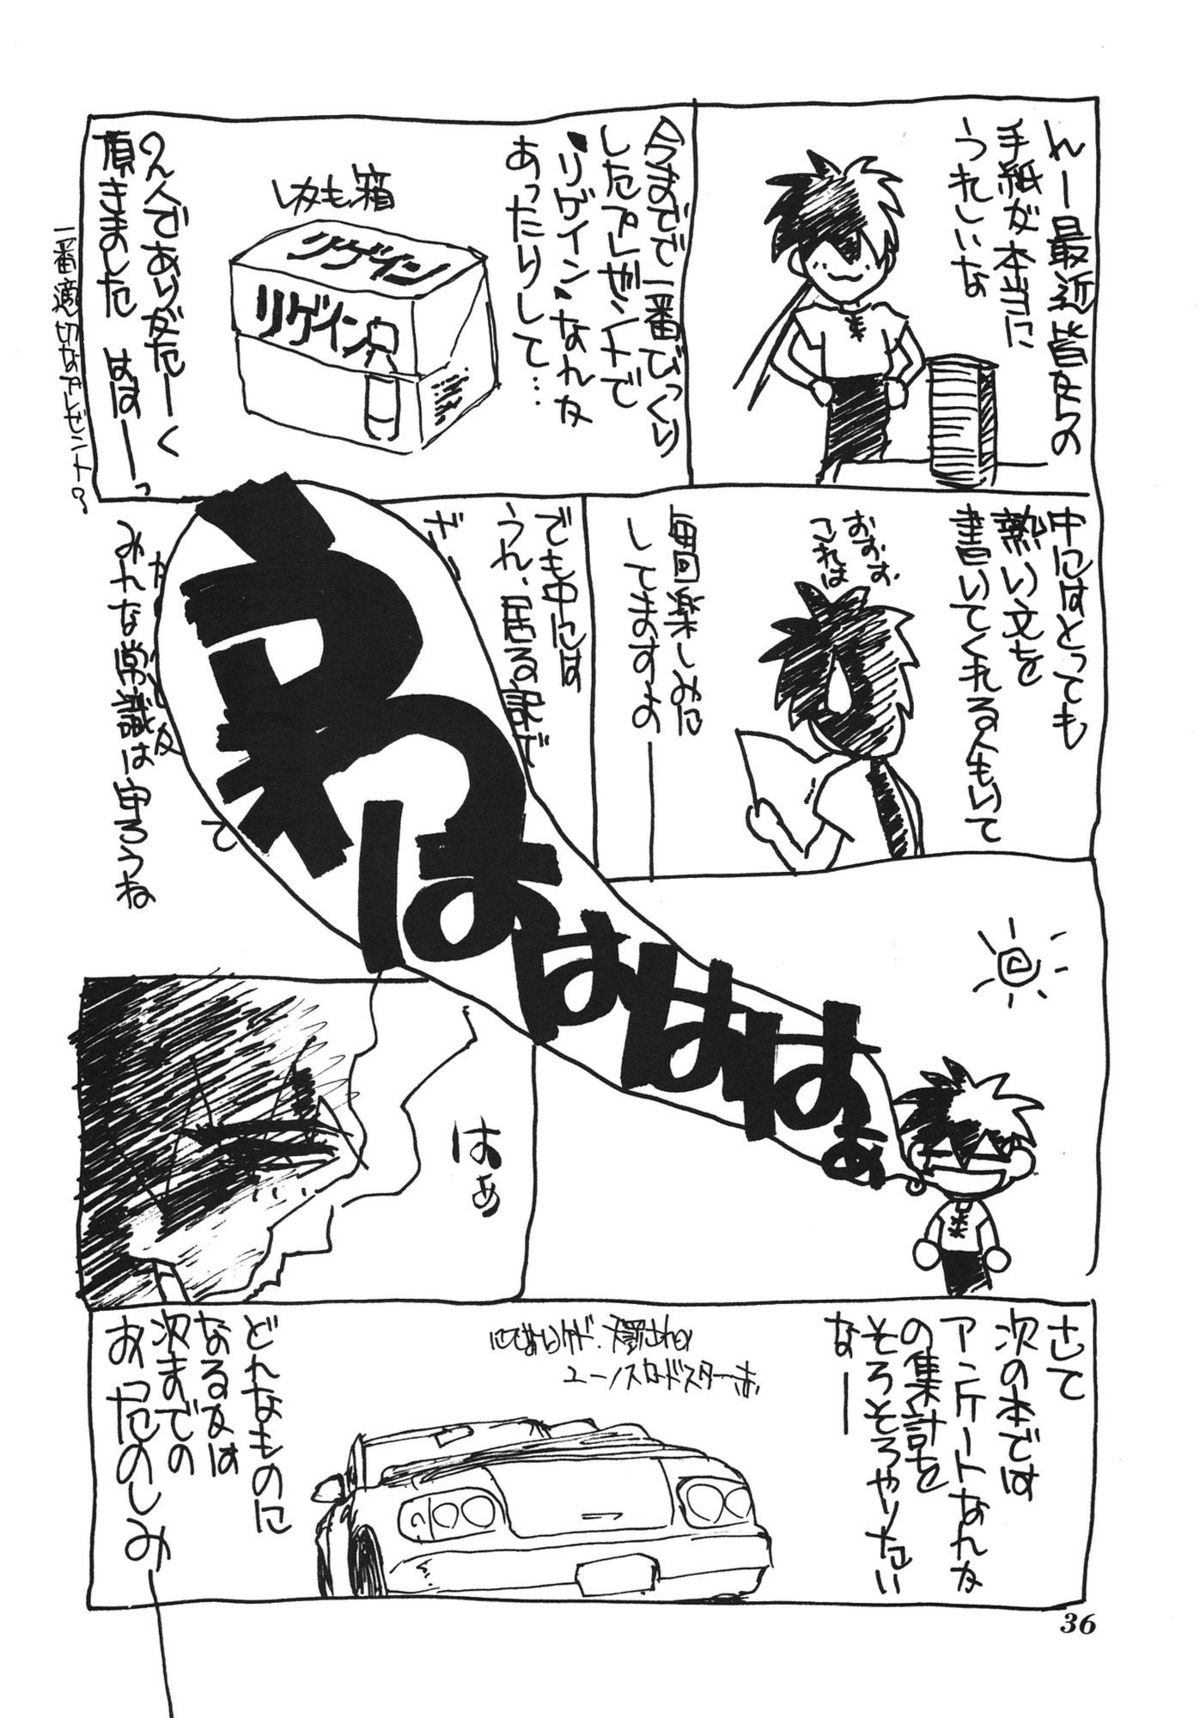 んー最近皆たちの
手紙が本当に
うれしいな
今までで一番びっくり
したプレゼントで
"リゲイン"なんか
あったりして…
しかも、箱
リゲイン
リゲイン
のんでありがたーく
頂きました はすーっ
一番適切なプレゼント?
中にはとっても
熱い文を
書いてくれる人もいて
おおお
これは
毎回楽しみに
してますよのー
でも中には
うれ、居る訳で
みんな常識は守ろうね
て
うわはははははぁ
はぁ
さて
次の本では
アンケートなんか
の集計を
そろそろやりたい
なー
ユーノスロードスター
どんなものに
なるかは
次までの
おったのしみー
36